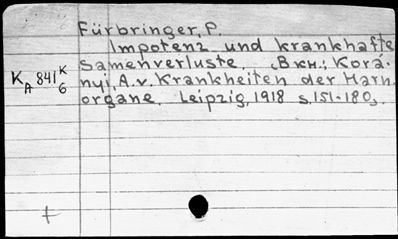 Fürbringer, P.
Impotenz und krankhafte
Samenverluste. (Вкн.: Korá-
nyi, A.v. Krankheiten der Harn-
organe. Leipzig, 1918 s. 151-180).
K A 841 K 6